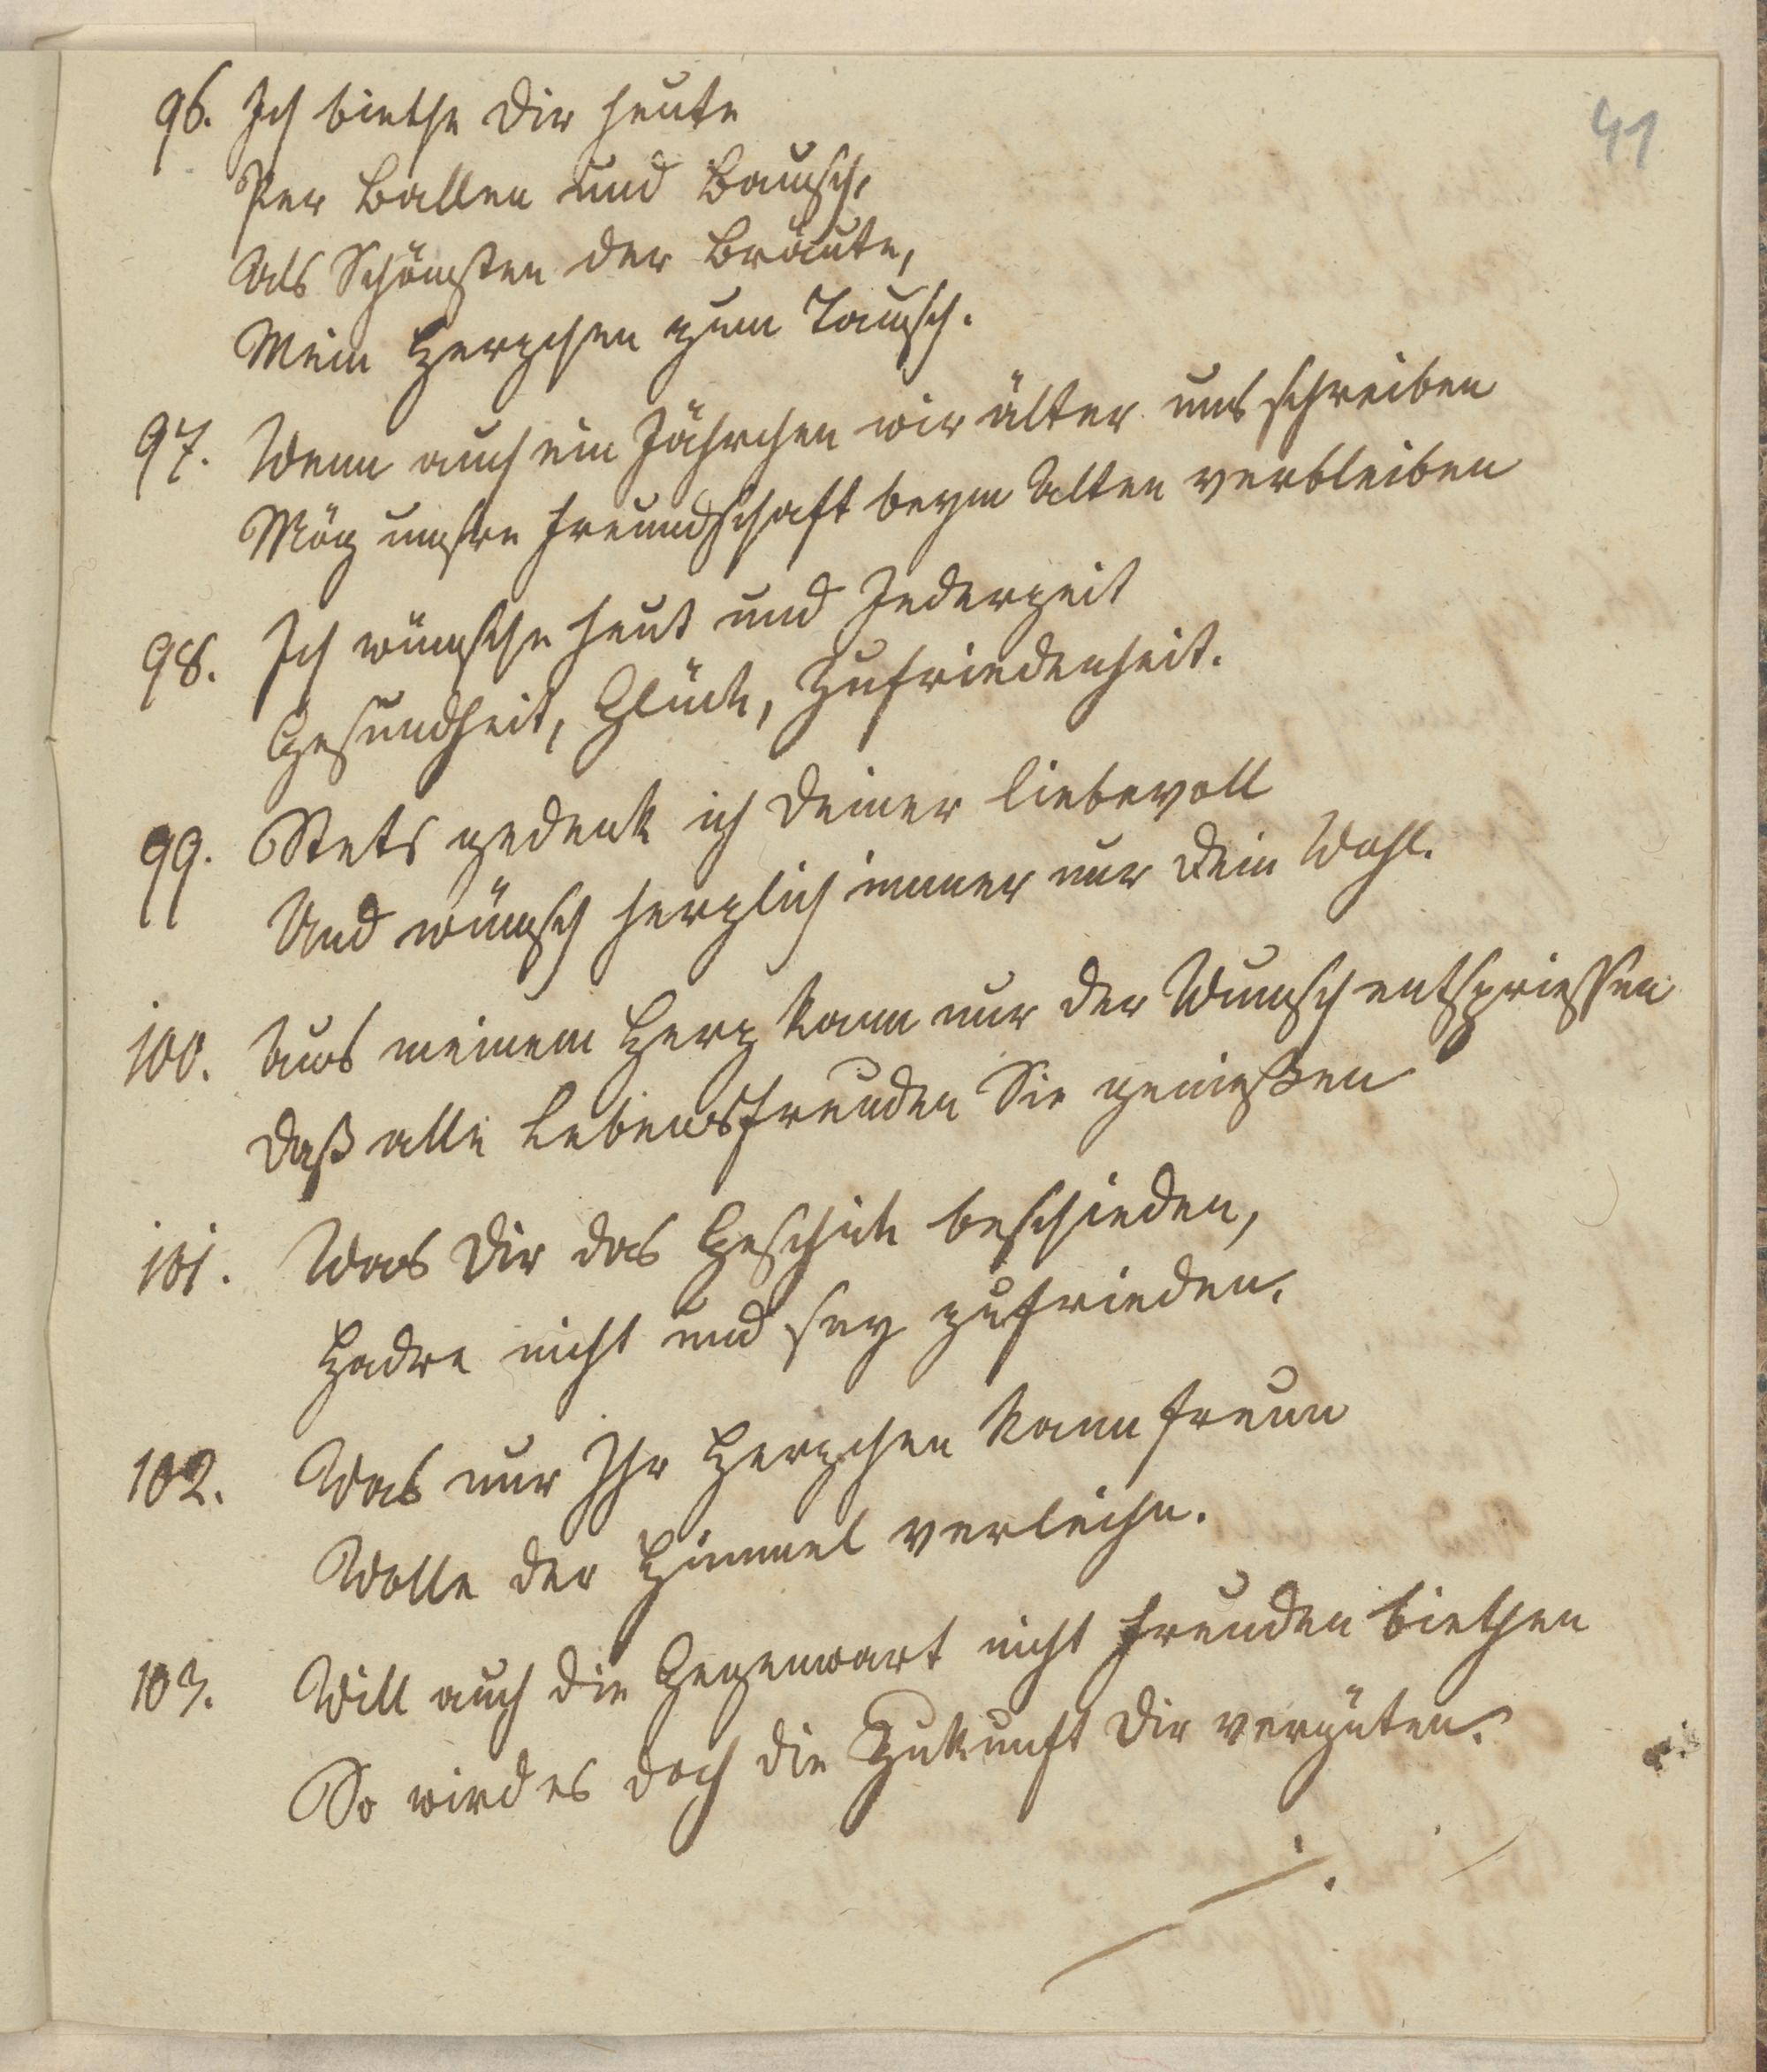 41
96. Ich biethe Dir heute
Per Ballen und Bausch,
Als Schönsten der Bräute,
Mein Herzchen zum Tausch.
97. Wenn auch ein Jährchen wir älter uns schreiben
Mög unsre Freundschaft beym Alten verbleiben
98. Ich wünsche heut und Jederzeit
Gesundheit, Glück, Zufriedenheit.
99. Stets gedenk ich Deiner liebevoll
Und wünsch herzlich immer nur Dein Wohl.
100. Aus meinem Herz kann nur der Wunsch entspriessen
Daß alle Lebensfreuden Sie genießen
101. Was Dir das Geschick beschieden,
Hadre nicht und sey zufrieden.
102. Was nur Ihr Herzchen kann freun
Wolle der Himmel verleihn.
103. Will auch die Gegenwart nicht Freuden biethen
So wird es doch die Zukunft Dir vergüten.